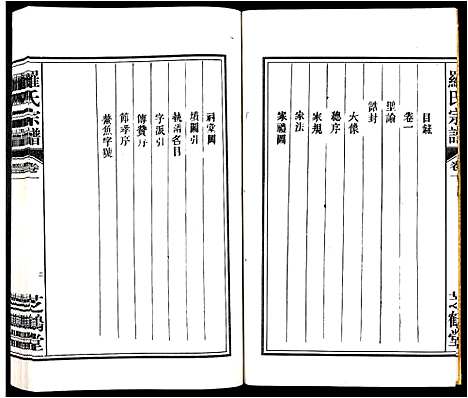 羅氏宗譜
目錄
卷一
聖諭
誥封
大像
總序
家規
家法
家禮圖
芝鶴堂
祠堂圖
墳圖引
執事名目
字派引
傳贊序
節孝序
鱉魚字號
羅氏宗譜
卷一
芝鶴堂